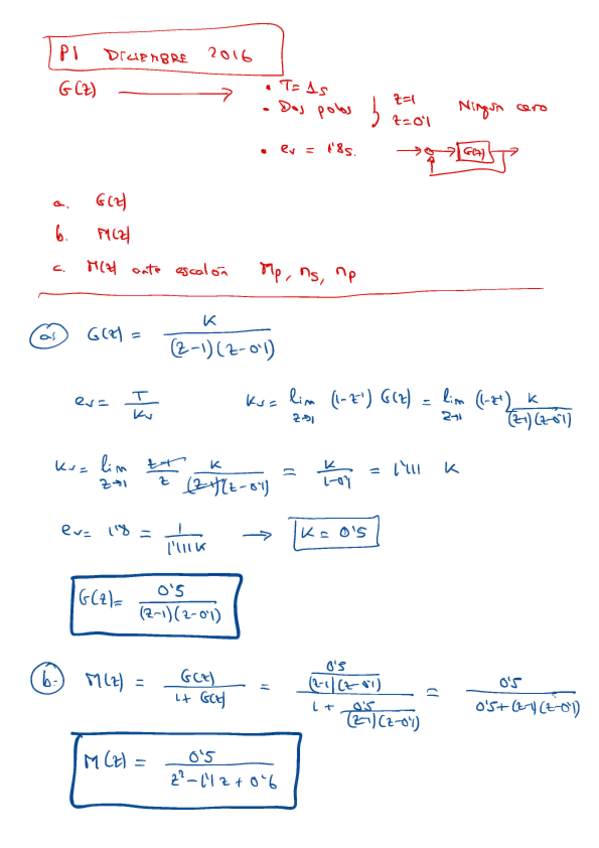 P1 DICIEMBRE 2016
G(z) → • T = 1s
• Dos polos } z=1 z=0'1 Ningún cero
• ev = 1'8s. → G(z) →
a. G(z)
b. M(z)
c. M(z) ante escalón Mp, ns, np
a) G(z) = K / (z-1)(z-0'1)
ev = T / Kv Kv = lim z→1 (1-z⁻¹) G(z) = lim z→1 (1-z⁻¹) K / (z-1)(z-0'1)
Kv = lim z→1 z-1 / z K / (z-1)(z-0'1) = K / 1-0'1 = 1'111 K
ev = 1'8 = 1 / 1'111K → K = 0'5
G(z) = 0'5 / (z-1)(z-0'1)
b. M(z) = G(z) / 1 + G(z) = 0'5 / (z-1)(z-0'1) / 1 + 0'5 / (z-1)(z-0'1) = 0'5 / 0'5 + (z-1)(z-0'1)
M(z) = 0'5 / z² - 1'1z + 0'6